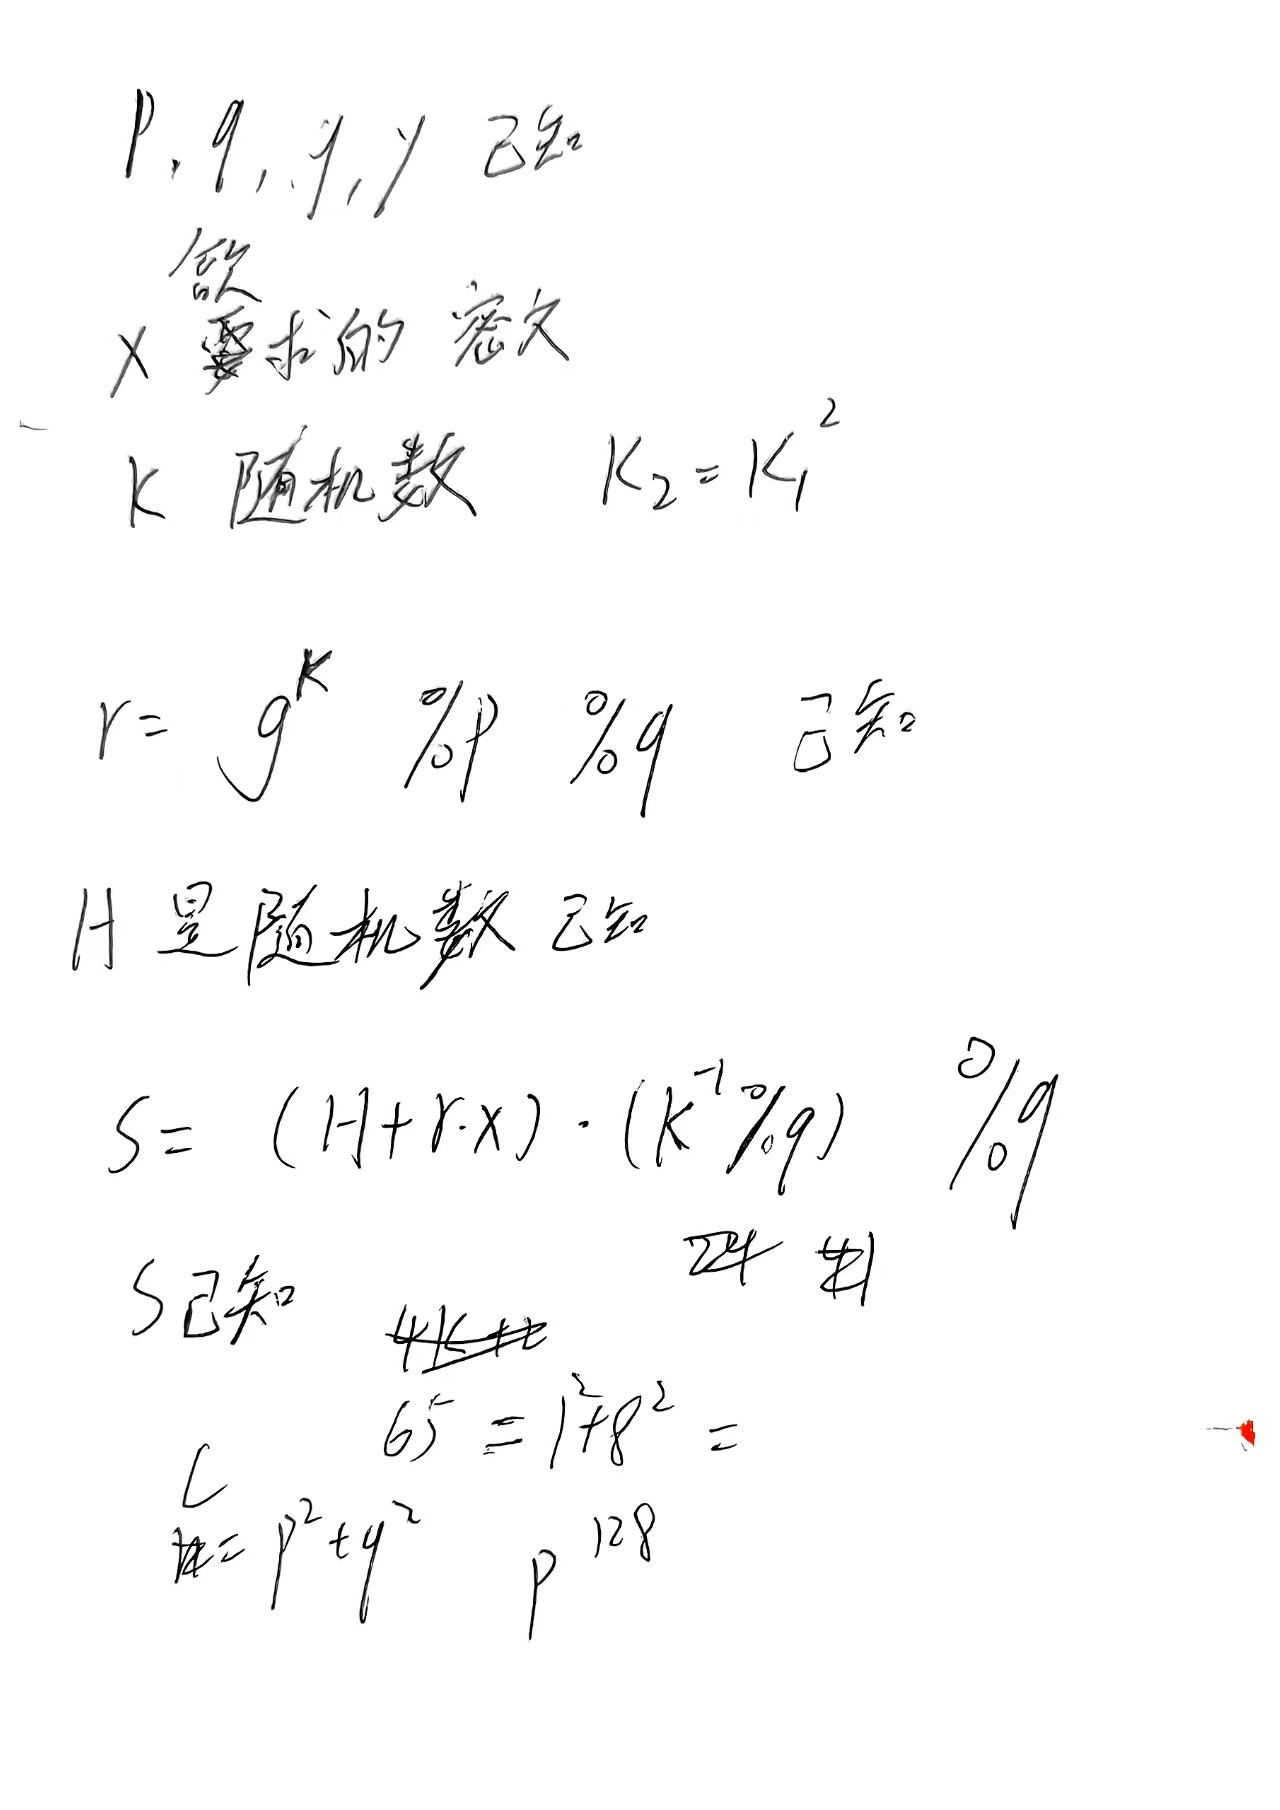 p, q, g, y 已知
欲
x 要求的 密文
K 随机数 K₂ = K₁²
r = g^K %p %q 已知
H 是随机数 已知
S = (H+r·x)·(k⁻¹%q) %q
S已知
65 = 1²+8² =
C
n = p²+q² p¹²⁸